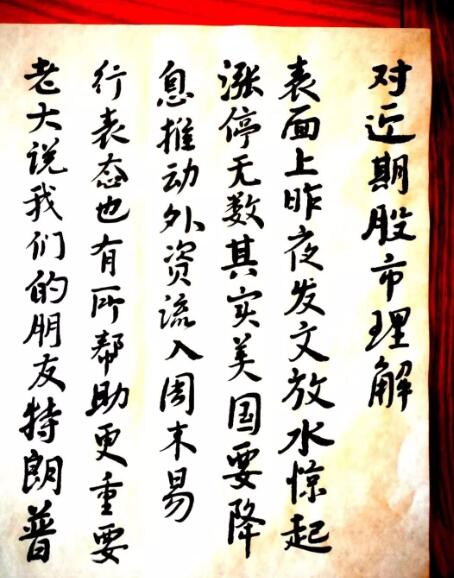 对近期股市理解
表面上昨夜发文放水惊起
涨停无数其实美国要降
息推动外资流入周末易
行表态也有所帮助更重要
老大说我们的朋友特朗普